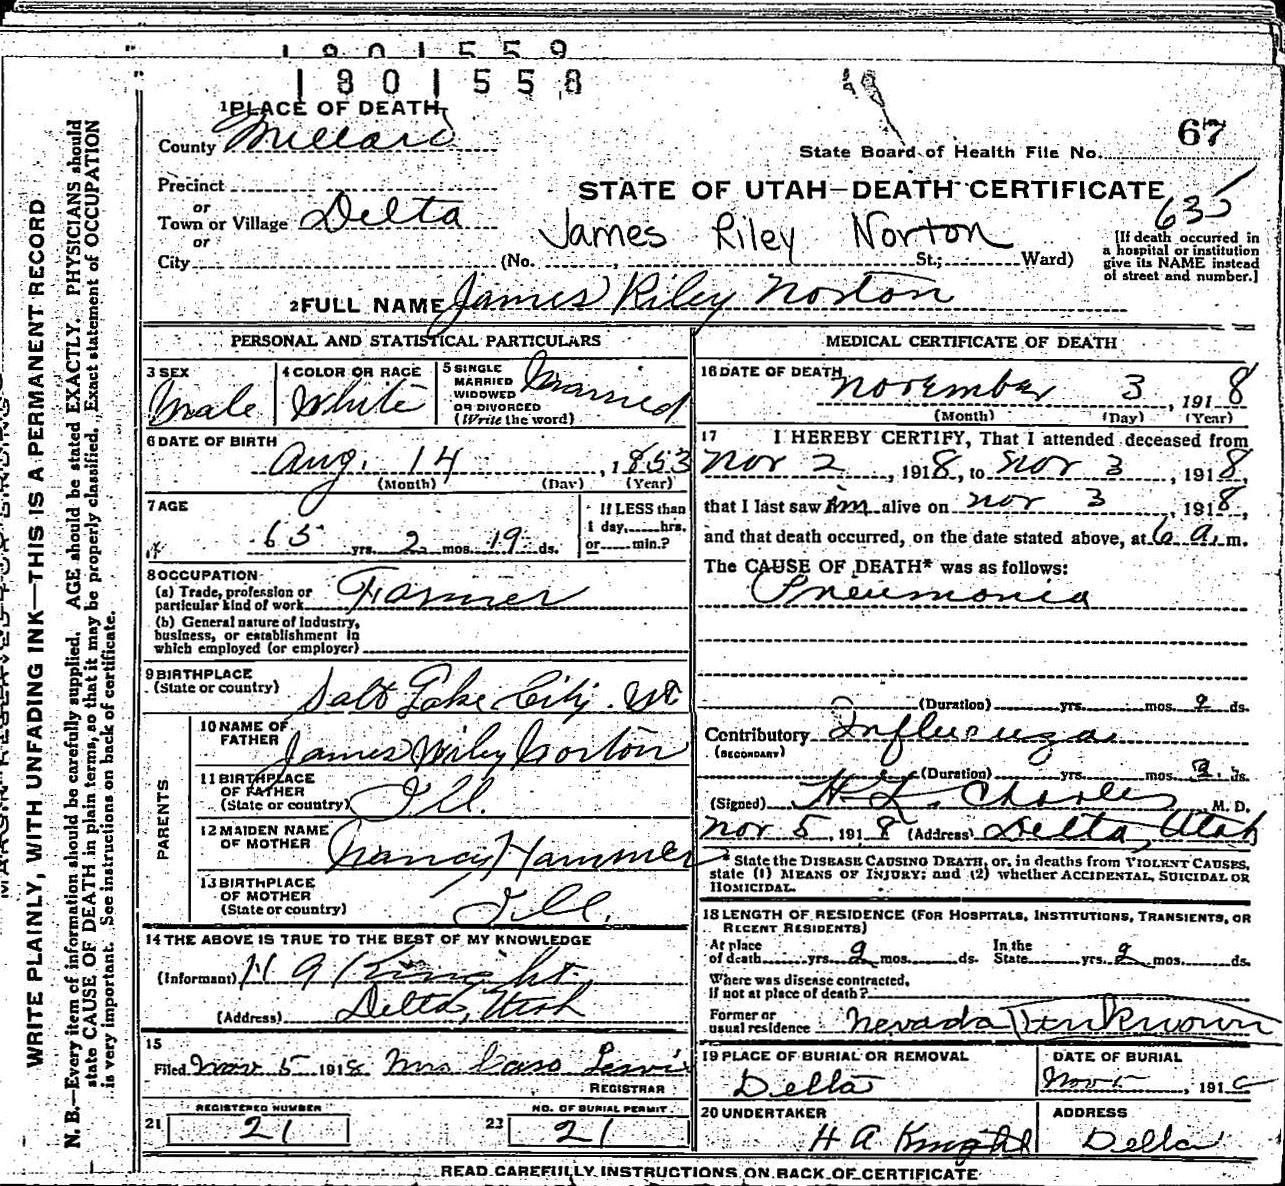 1801559
1801558
1 PLACE OF DEATH
County Millard
67
State Board of Health File No.
Precinct
or
STATE OF UTAH—DEATH CERTIFICATE
Town or Village Delta
635
or
James Riley Norton
City (No. , St.; Ward)
[If death occurred in
a hospital or institution
give its NAME instead
of street and number.]
2 FULL NAME James Riley Norton
PERSONAL AND STATISTICAL PARTICULARS
3 SEX
Male
4 COLOR OR RACE
White
5 SINGLE
MARRIED
WIDOWED
OR DIVORCED
(Write the word)
Married
6 DATE OF BIRTH
Aug. 14, 1853
(Month) (Day) (Year)
7 AGE
65 yrs. 2 mos. 19 ds.
If LESS than
1 day, hrs.
or min.?
8 OCCUPATION
(a) Trade, profession or
particular kind of work Farmer
(b) General nature of Industry,
business, or establishment in
which employed (or employer)
9 BIRTHPLACE
(State or country) Salt Lake City. Ut
PARENTS
10 NAME OF
FATHER James Wiley Norton
11 BIRTHPLACE
OF FATHER
(State or country) Ill.
12 MAIDEN NAME
OF MOTHER Nancy Hammer
13 BIRTHPLACE
OF MOTHER
(State or country) Ill.
14 THE ABOVE IS TRUE TO THE BEST OF MY KNOWLEDGE
(Informant) H A Knight
(Address) Delta, Utah
15
Filed Nov 5 1918 Mrs Lewis
REGISTRAR
REGISTERED NUMBER
21 21
NO. OF BURIAL PERMIT
22 21
MEDICAL CERTIFICATE OF DEATH
16 DATE OF DEATH
November 3, 1918
(Month) (Day) (Year)
17 I HEREBY CERTIFY, That I attended deceased from
Nov 2, 1918, to Nov 3, 1918,
that I last saw him alive on Nov 3, 1918,
and that death occurred, on the date stated above, at 6 a.m.
The CAUSE OF DEATH* was as follows:
Pneumonia
(Duration) yrs. mos. 2 ds.
Contributory Influenza
(SECONDARY)
(Duration) yrs. mos. ds.
(Signed) H. L. Charles, M. D.
Nov 5, 1918 (Address) Delta, Utah
* State the DISEASE CAUSING DEATH, or, in deaths from VIOLENT CAUSES,
state (1) MEANS OF INJURY; and (2) whether ACCIDENTAL, SUICIDAL OR
HOMICIDAL.
18 LENGTH OF RESIDENCE (FOR HOSPITALS, INSTITUTIONS, TRANSIENTS, OR
RECENT RESIDENTS)
At place
of death yrs. 2 mos. ds.
In the
State yrs. 2 mos. ds.
Where was disease contracted,
If not at place of death?
Former or
usual residence Nevada Unknown
19 PLACE OF BURIAL OR REMOVAL
Delta
DATE OF BURIAL
Nov , 191
20 UNDERTAKER
H A Knight
ADDRESS
Delta
READ CAREFULLY INSTRUCTIONS ON BACK OF CERTIFICATE
WRITE PLAINLY, WITH UNFADING INK—THIS IS A PERMANENT RECORD
N. B.—Every item of information should be carefully supplied. AGE should be stated EXACTLY. PHYSICIANS should
state CAUSE OF DEATH in plain terms, so that it may be properly classified. Exact statement of OCCUPATION
is very important. See instructions on back of certificate.